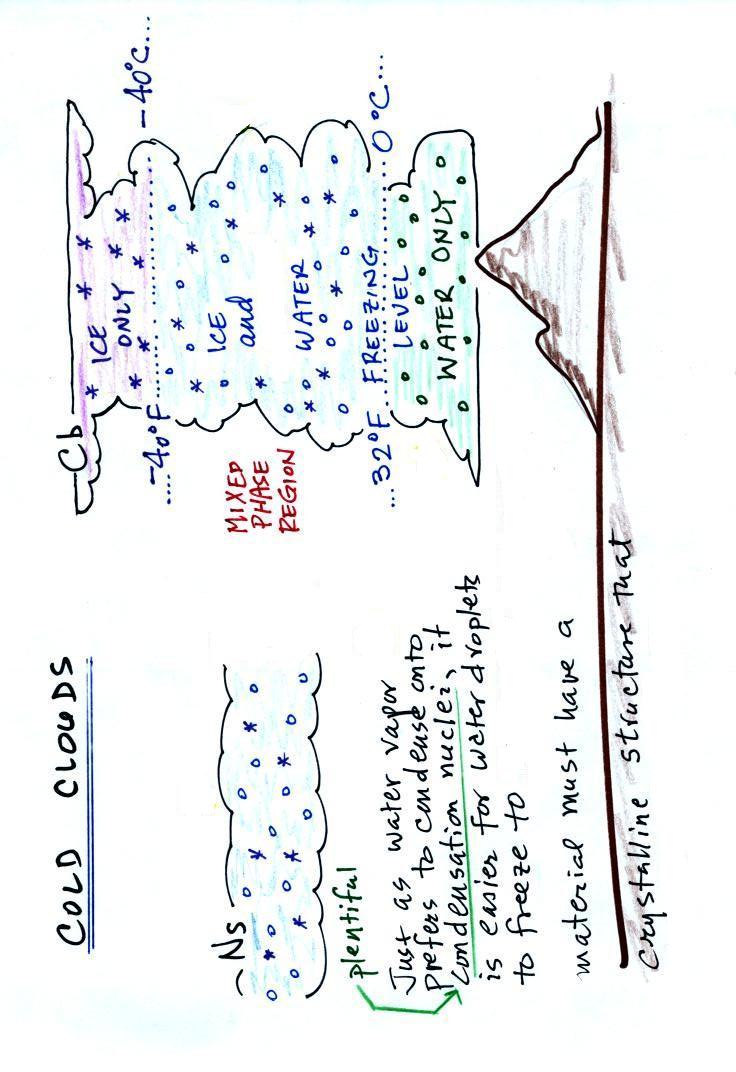 COLD CLOUDS
Cb
ICE
ONLY
....-40°F -40°C...
ICE
and
WATER
MIXED
PHASE
REGION
...32°F FREEZING 0°C...
LEVEL
WATER ONLY
~Ns
plentiful
Just as water vapor
prefers to condense onto
condensation nuclei, it
is easier for water droplets
to freeze to
material must have a
crystalline structure that